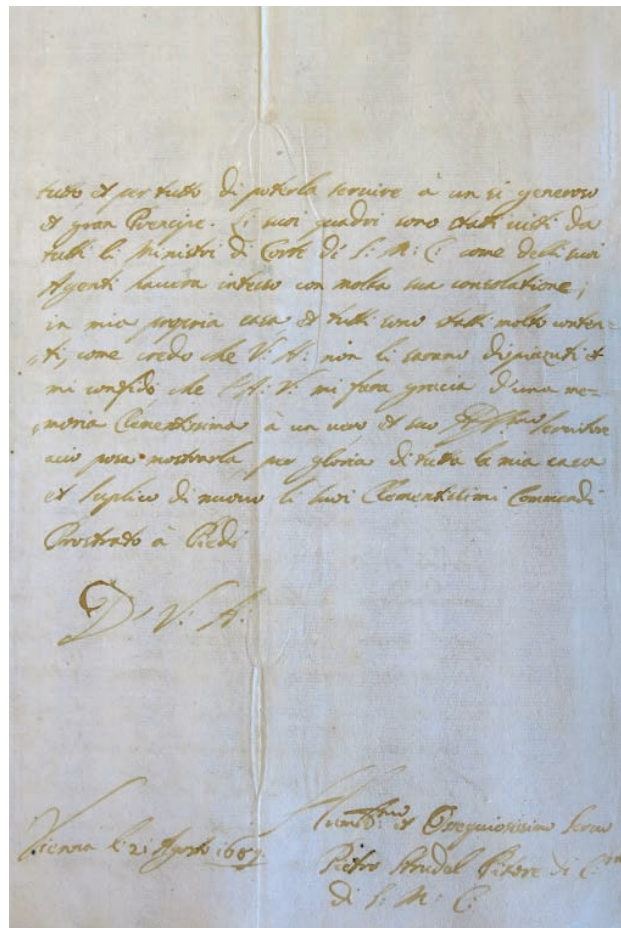 tutto et per tutto di poterla servire à un si generoso
et gran Prencipe. Li suoi quadri sono stati visti da
tutti li Ministri di Corte di S: M: C: come delli suoi
Agenti haverà inteso con molta sua consolatione;
in mia propria casa et tutti sono statti molto conten=
ti, come credo che V: A: non li sarano dispiaciuti et
mi confido che l'A: V: mi fara gracia d'una me=
moria Clementissima à un vero et suo servitore
acio posa mostrarla per gloria di tutta la mia casa
et suplico di nuovo li suoi Clementissimi Commandi
Prostrato à Piedi
D' V: A:
Vienna li 21 Agosto 1687
et Ossequiosissimo Servo
Pietro Strudel Pitore di
di S: M: C: